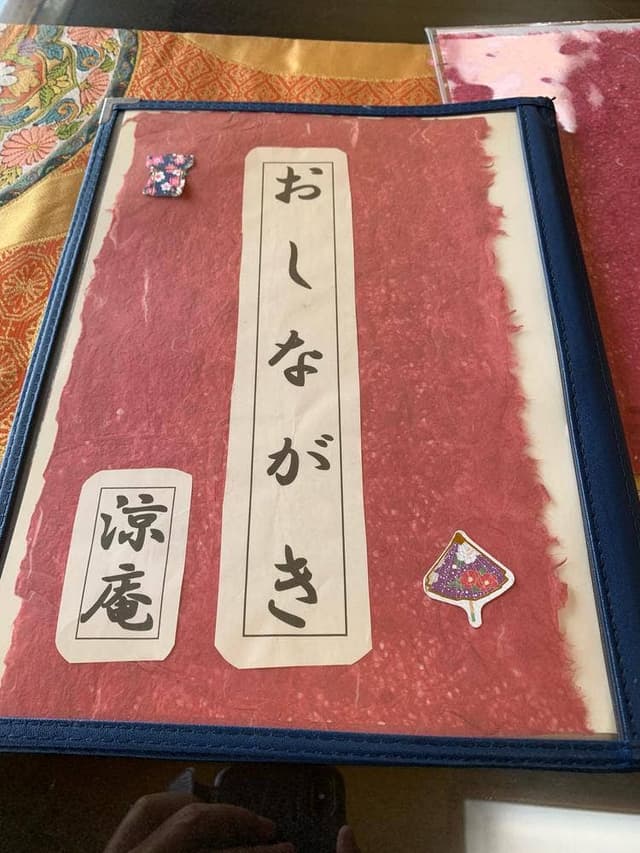 おしながき
涼庵